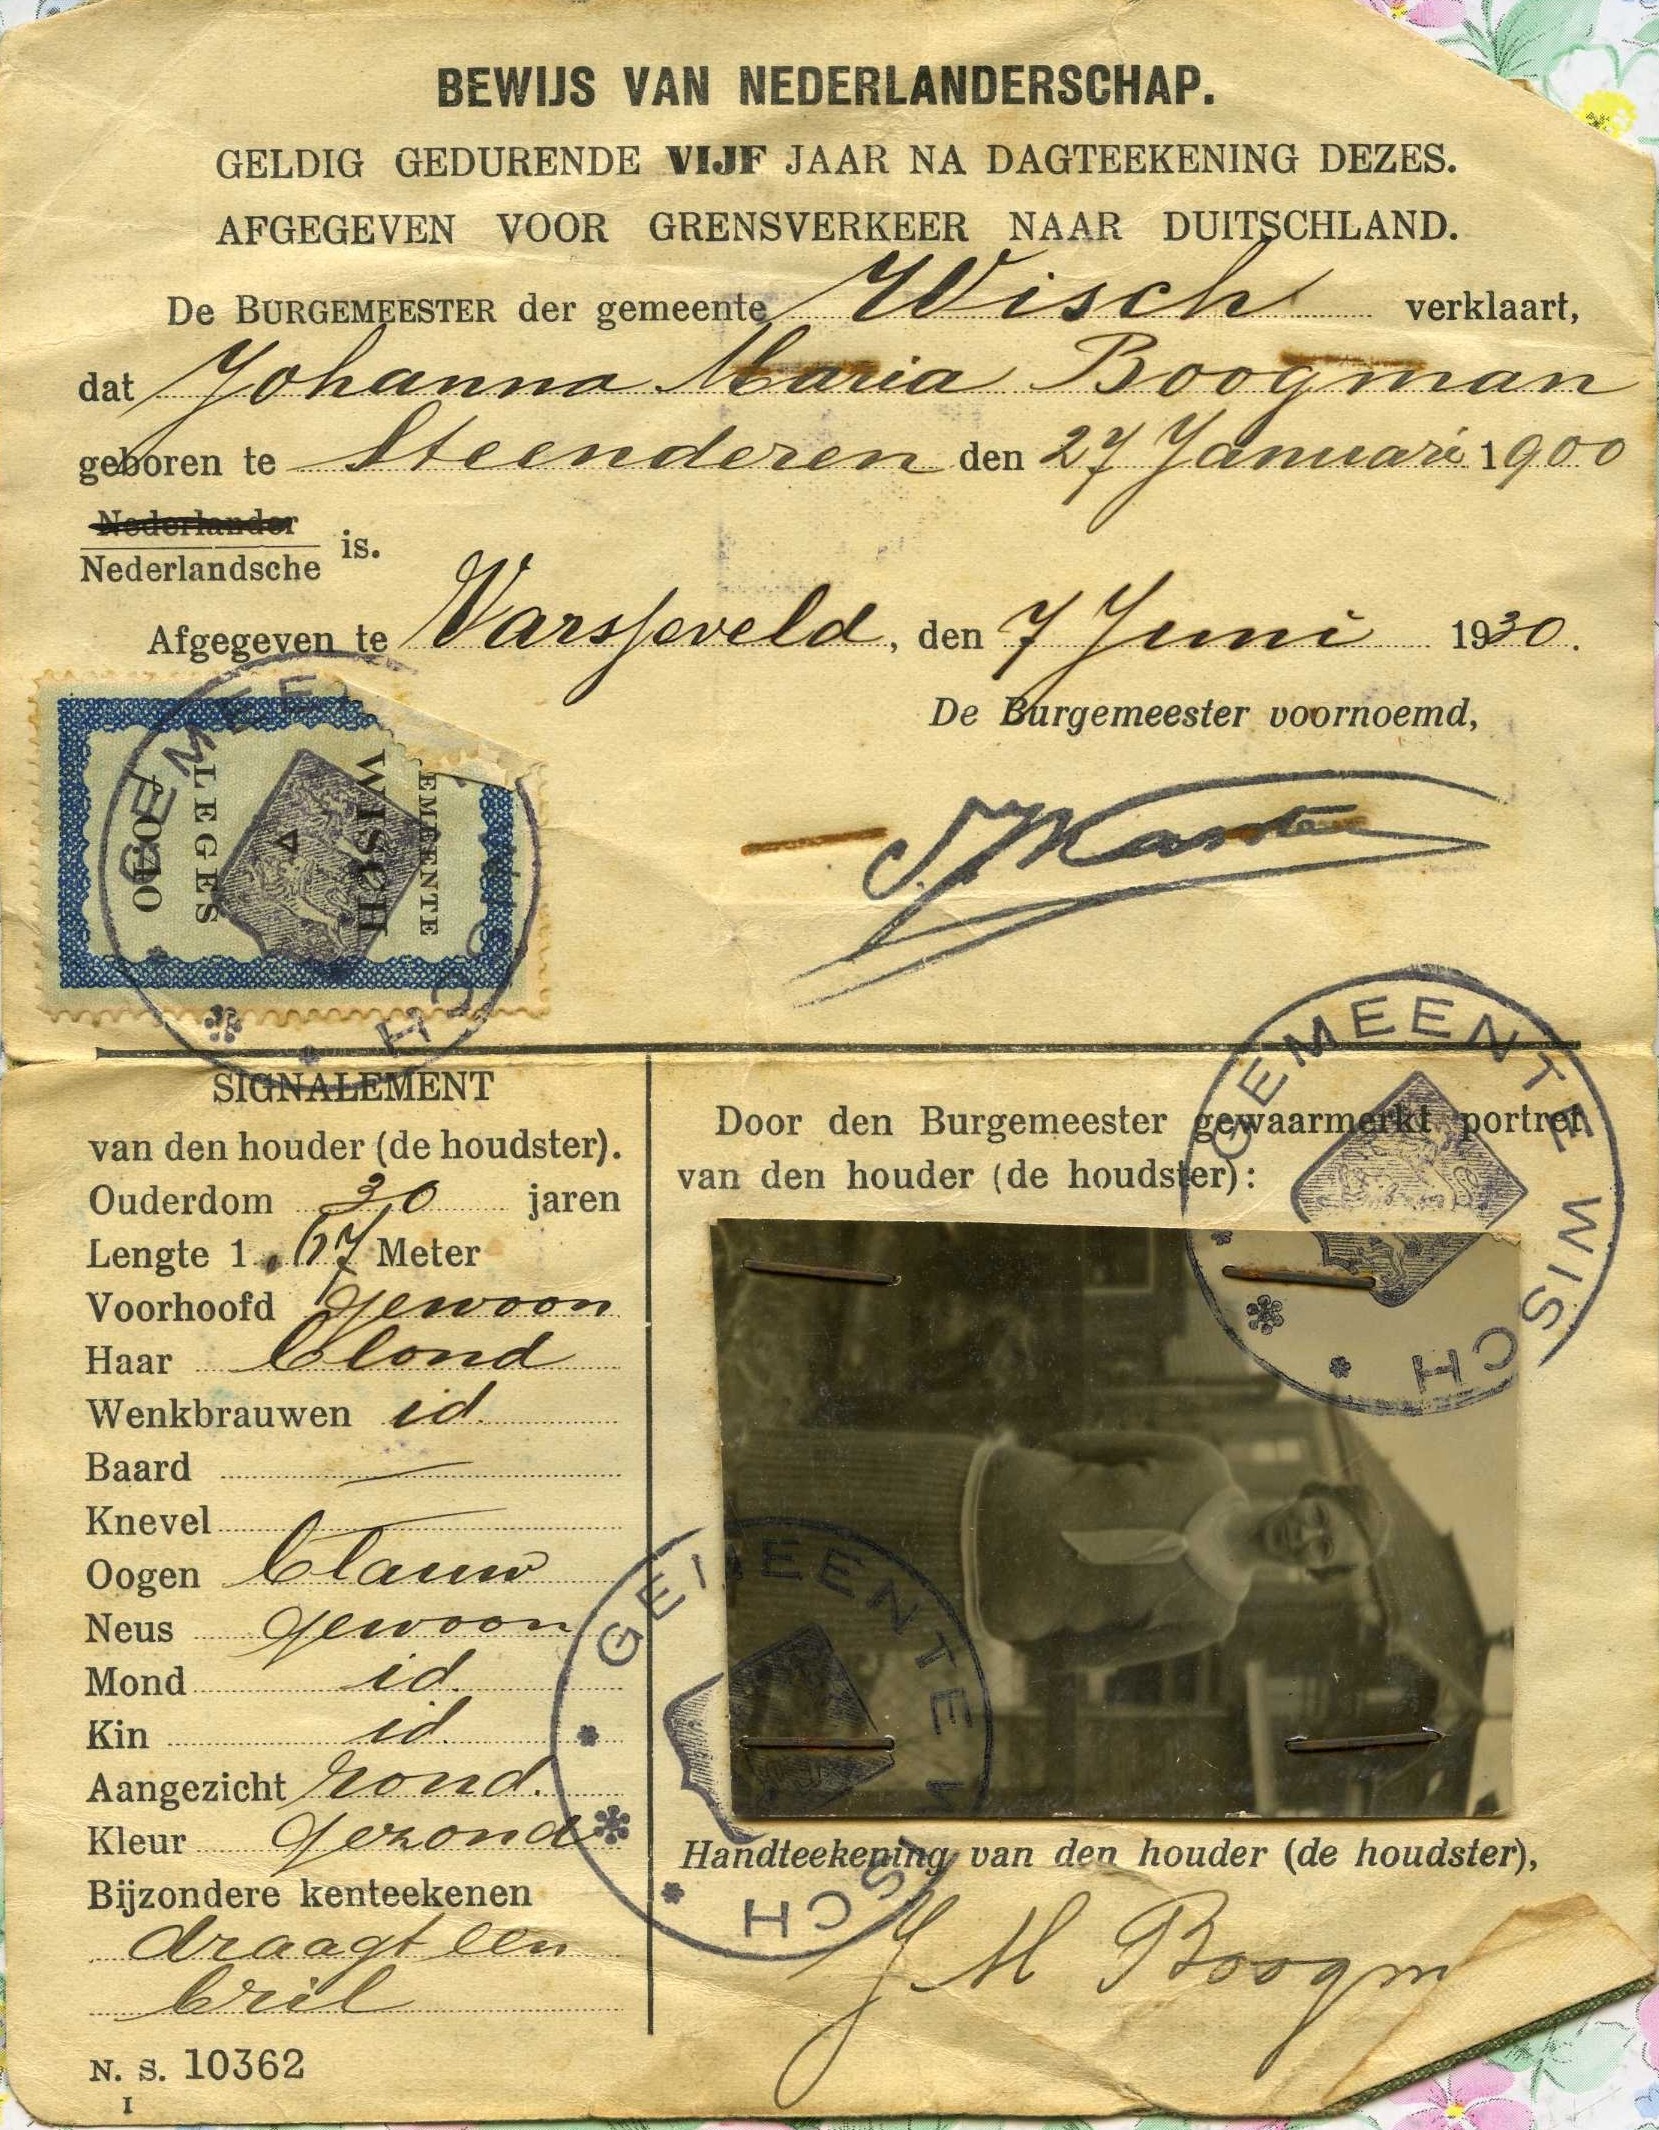 BEWIJS VAN NEDERLANDERSCHAP.
GELDIG GEDURENDE VIJF JAAR NA DAGTEEKENING DEZES.
AFGEGEVEN VOOR GRENSVERKEER NAAR DUITSCHLAND.
De BURGEMEESTER der gemeente Wisch verklaart,
dat Johanna Maria Boogman
geboren te Steenderen den 27 Januari 1900
Nederlander
Nederlandsche is.
Afgegeven te Varsseveld, den 7 Juni 1930.
De Burgemeester voornoemd,
GEMEENTE
WISCH
LEGES
GEMEE CH
SIGNALEMENT
van den houder (de houdster).
Ouderdom 30 jaren
Lengte 1.67 Meter
Voorhoofd gewoon
Haar blond
Wenkbrauwen id.
Baard —
Knevel —
Oogen blauw
Neus gewoon
Mond id.
Kin id.
Aangezicht rond.
Kleur gezond
Bijzondere kenteekenen
draagt een
bril
N. S. 10362
I
Door den Burgemeester gewaarmerkt portret
van den houder (de houdster):
GEMEENTE WISCH
GEMEENTE WISCH
Handteekening van den houder (de houdster),
J M Boogm